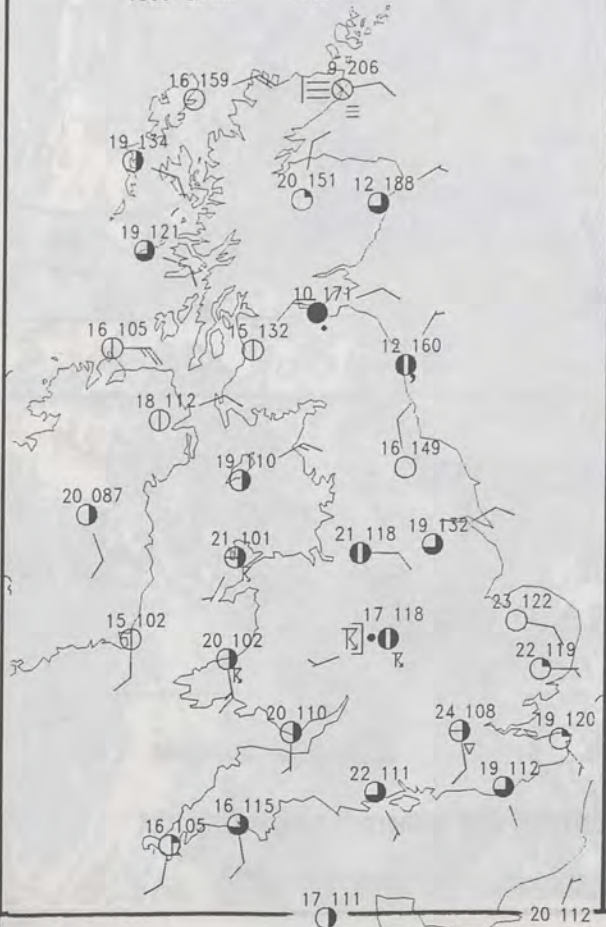 9 206
16 159
19 134
20 151
12 188
19 121
10 171
16 105
15 132
12 160
18 112
16 149
19 110
20 087
21 101
21 118
19 132
15 102
17 118
23 122
20 102
22 119
20 110
24 108
19 120
22 111
19 112
16 115
16 105
17 111
20 112